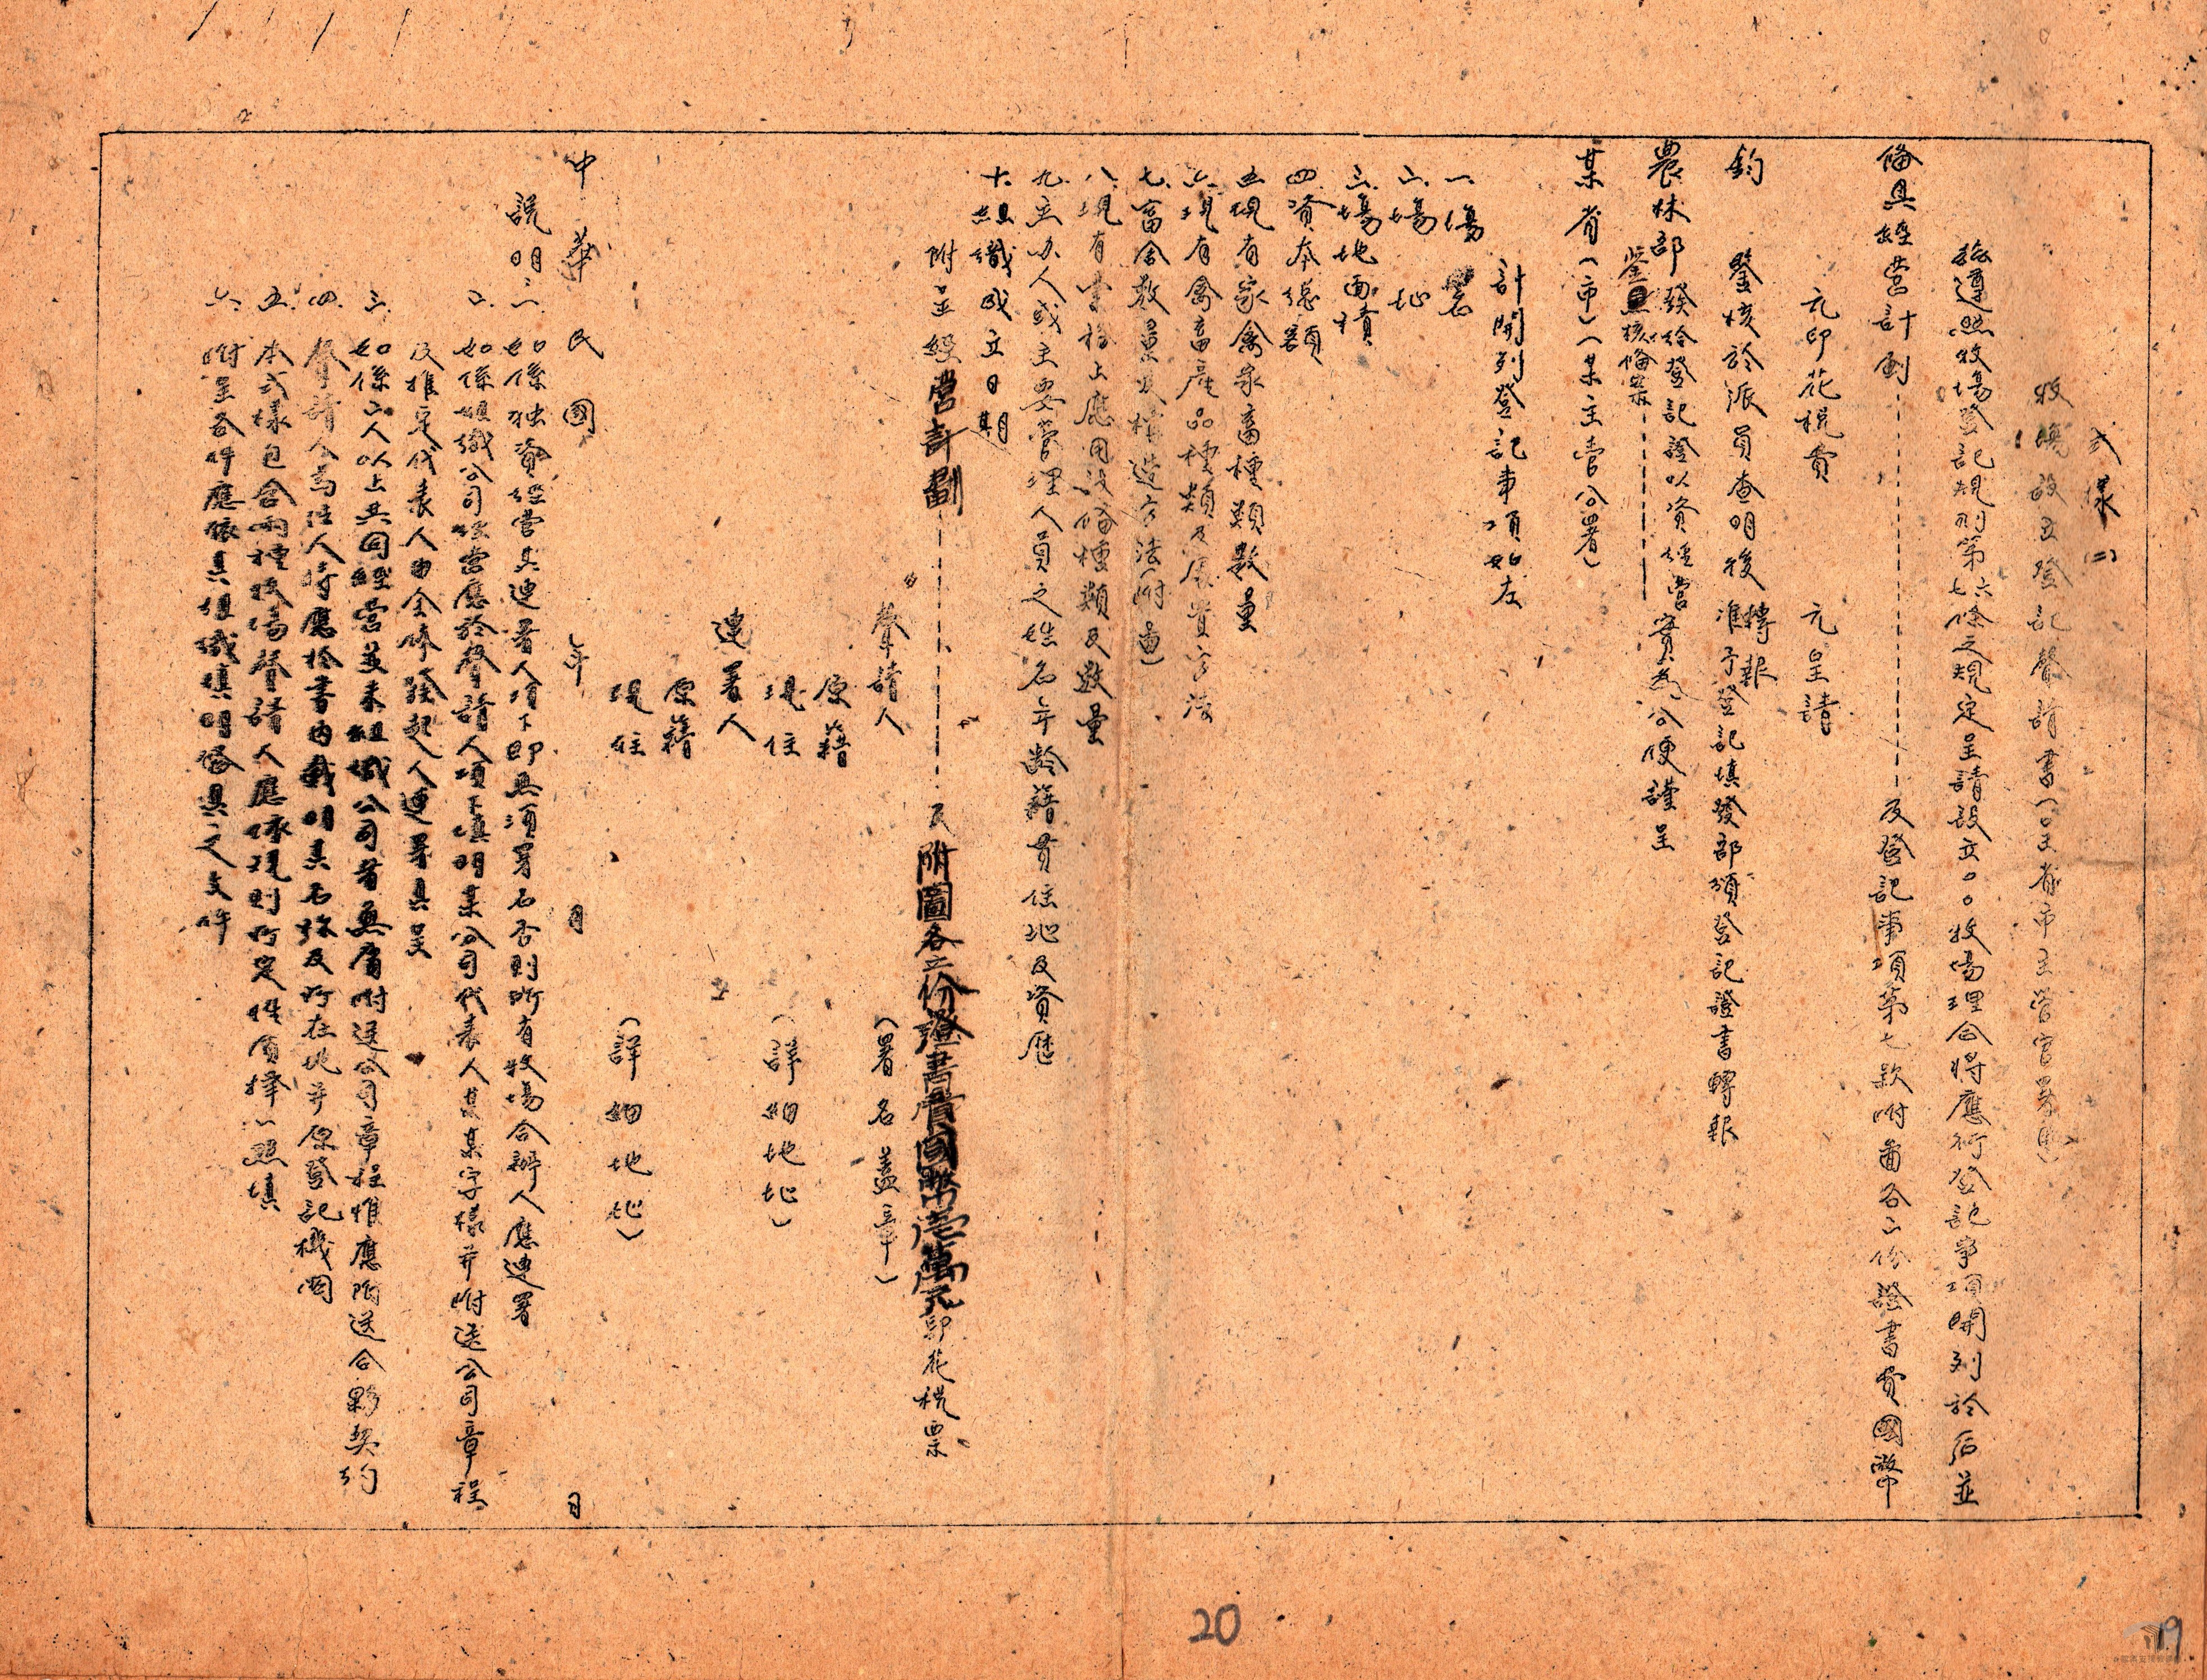 式樣(二)
牧場設立登記聲請書(呈主省市主管官署用)
茲遵照牧場登記規則第六七條之規定呈請設立○○牧場理合將應行登記事項開列於后並
備具經營計劃------及登記事項第七款附圖各二份證書費國幣
元印花稅費 元呈請
鈞鑒核於派員查明後轉報准予登記填發部頒登記證書轉報
農林部發給登記證以資經營實為公便謹呈
鑒且核備案------
某省(市)(某主管公署)
計開列登記事項如左
一.場名
二.場址
三.場地面積
四.資本總額
五.現有家禽家畜種類數量
六.現有禽畜產品種類及展賣方法
七.畜舍數量及構造方法(附圖)
八.現有業務上應用設備種類及數量
九.主办人或主要管理人員之姓名年齡籍貫住地及資歷
十.組織成立日期
附呈經營計劃------及附圖各二份證書費國幣壱萬元印花稅票
聲請人 (署名蓋章)
原籍
現住 (詳細地址)
連署人
原籍
現住 (詳細地址)
中華民國 年 月 日
說明:一.如係独資經營其連署人項下即無須署名否則所有牧場合辦人應連署
2.如係組織公司經營應於聲請人項下填明某公司代表人某某字樣并附送公司章程
及推定代表人由全体發起人連署具呈
三.如係二人以上共同經營並未組織公司者無庸附送公司章程惟應附送合夥契約
四.聲請人為法人時應於書内載明其名称及所在地并原登記機関
五.本式樣包含兩種牧場聲請人應依規則所定性質擇一照填
六.附呈各件應依其組織填明發具之文件
20
19